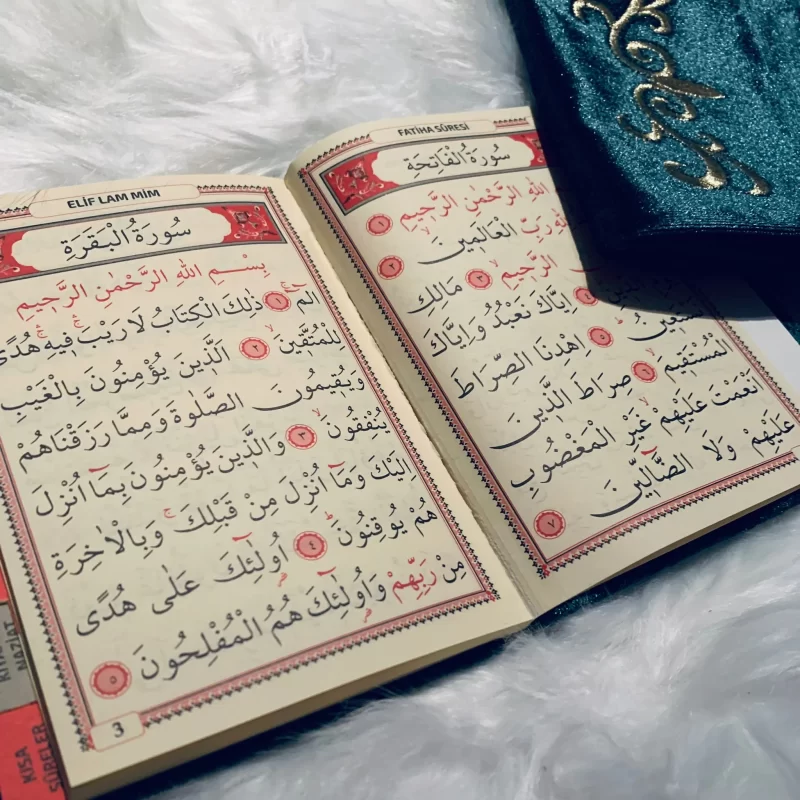 FATİHA SÛRESİ
سُورَةُ الْفَاتِحَةِ
اللهِ الرَّحْمٰنِ الرَّحٖيمِ ﴿١﴾
رَبِّ الْعَالَمٖينَ ﴿٢﴾
الرَّحٖيمِ ﴿٣﴾ مَالِكِ
اِيَّاكَ نَعْبُدُ وَاِيَّاكَ
﴿٥﴾ اِهْدِنَا الصِّرَاطَ
الْمُسْتَقٖيمَ ﴿٦﴾ صِرَاطَ الَّذٖينَ
اَنْعَمْتَ عَلَيْهِمْ غَيْرِ الْمَغْضُوبِ
عَلَيْهِمْ وَلَا الضَّٓالّٖينَ ﴿٧﴾
ELİF LAM MİM
سُورَةُ الْبَقَرَةِ
بِسْمِ اللهِ الرَّحْمٰنِ الرَّحٖيمِ
الٓمٓ ﴿١﴾ ذٰلِكَ الْكِتَابُ لَا رَيْبَ فٖيهِ هُدًى
لِلْمُتَّقٖينَ ﴿٢﴾ اَلَّذٖينَ يُؤْمِنُونَ بِالْغَيْبِ
وَيُقٖيمُونَ الصَّلٰوةَ وَمِمَّا رَزَقْنَاهُمْ
يُنْفِقُونَ ﴿٣﴾ وَالَّذٖينَ يُؤْمِنُونَ بِمَٓا اُنْزِلَ
اِلَيْكَ وَمَٓا اُنْزِلَ مِنْ قَبْلِكَ وَبِالْاٰخِرَةِ
هُمْ يُوقِنُونَ ﴿٤﴾ اُولٰٓئِكَ عَلٰى هُدًى
مِنْ رَبِّهِمْ وَاُولٰٓئِكَ هُمُ الْمُفْلِحُونَ ﴿٥﴾
3
KISA
SÛRELER